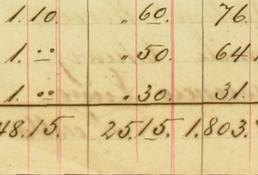 1. 10. „ 60. 76.
1. „ „ „ 50. 64
1. „ „ „ 30. 31.
48. 15. 25. 15. 1.803.